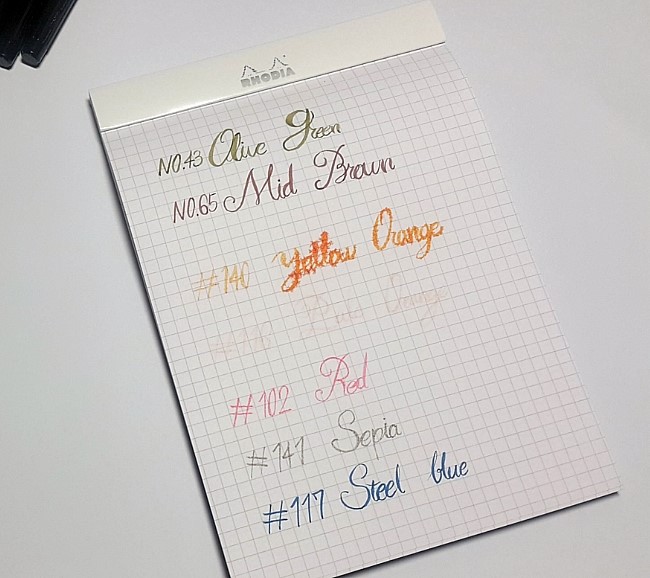 RHODIA
NO.43 Olive green
NO.65 Mid Brown
#140 Yellow Orange
Orange
#102 Red
#141 Sepia
#117 Steel blue